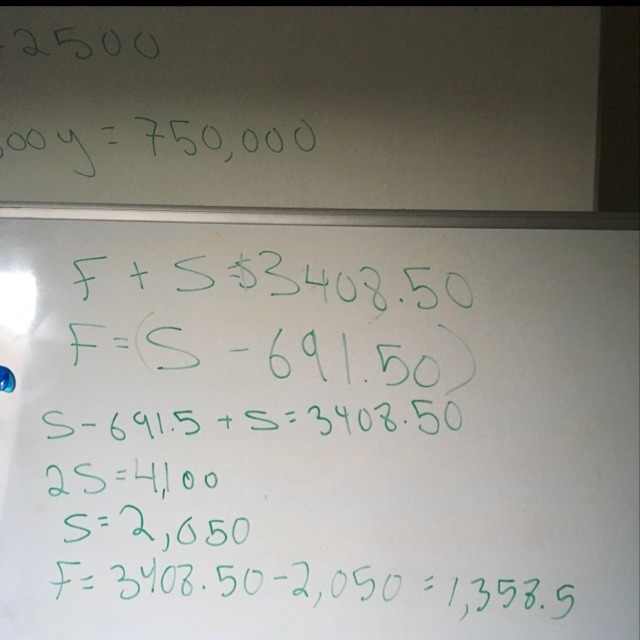 =2500
500y = 750,000
F + S = $3408.50
F = (S - 691.50)
S - 691.5 + S = 3408.50
2S = 4,100
S = 2,050
F = 3408.50 - 2,050 = 1,358.5